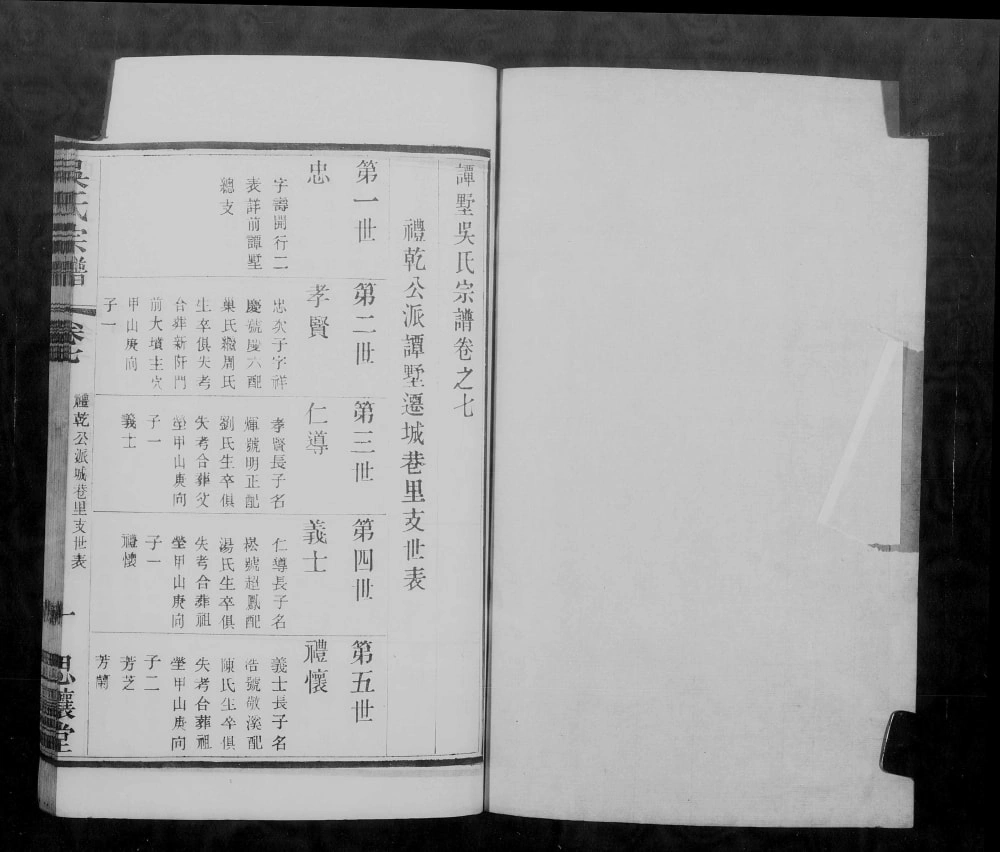 譚墅吳氏宗譜卷之七
禮乾公派譚墅遷城巷里支世表
第一世
忠
字壽開行二
表詳前譚墅
總支
第二世
孝賢
忠次子字祥
慶號慶六配
巢氏繼周氏
生卒俱失考
合葬新阡門
前大墳主穴
甲山庚向
子一
第三世
仁導
孝賢長子名
煇號明正配
劉氏生卒俱
失考合葬父
塋甲山庚向
子一
義士
第四世
義士
仁導長子名
松號超鳳配
湯氏生卒俱
失考合葬祖
塋甲山庚向
子一
禮懷
第五世
禮懷
義士長子名
浩號敬溪配
陳氏生卒俱
失考合葬祖
塋甲山庚向
子二
芳芝
芳蘭
吳氏宗譜
卷七
禮乾公派城巷里支世表
一
思讓堂